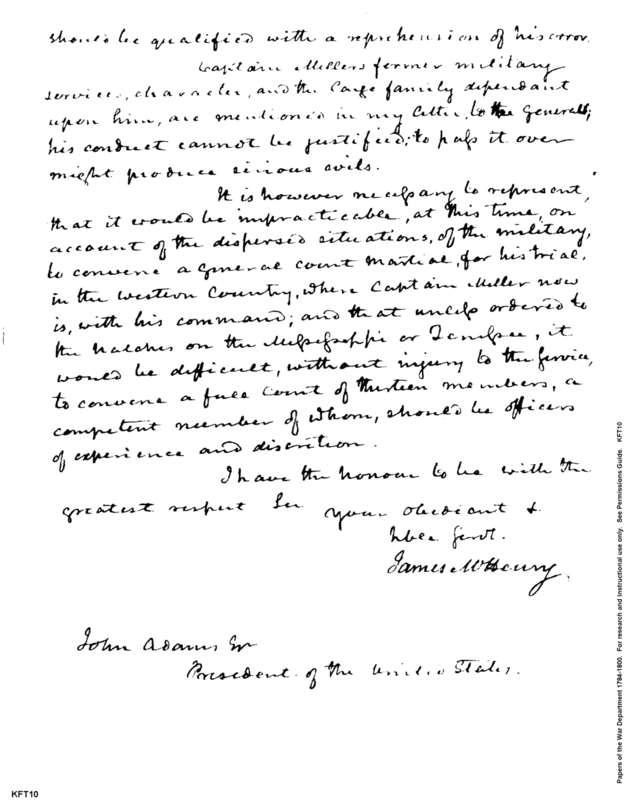 should be qualified with a reprehension of his error.
Captain Millers former military
services, character, and the large family dependant
upon him, are mentioned in my letter, to the Generals;
his conduct cannot be justified; to pass it over
might produce serious evils.
It is however necessary to represent,
that it would be impracticable, at this time, on
account of the dispersed situations, of the military,
to convene a general court martial, for his trial,
in the western Country, where Captain Miller now
is, with his command; and that unless ordered to
the Natches on the Mississippi or Tenessee, it
would be difficult, without injury to the service,
to convene a full Court of thirteen members, a
competent number of whom, should be officers
of experience and discretion.
I have the honour to be with the
greatest respect Sir your obediant &
hble servt.
James McHenry.
John Adams Esqr
President of the United States.
KFT10
Papers of the War Department 1784-1800. For research and instructional use only. See Permissions Guide. KFT10